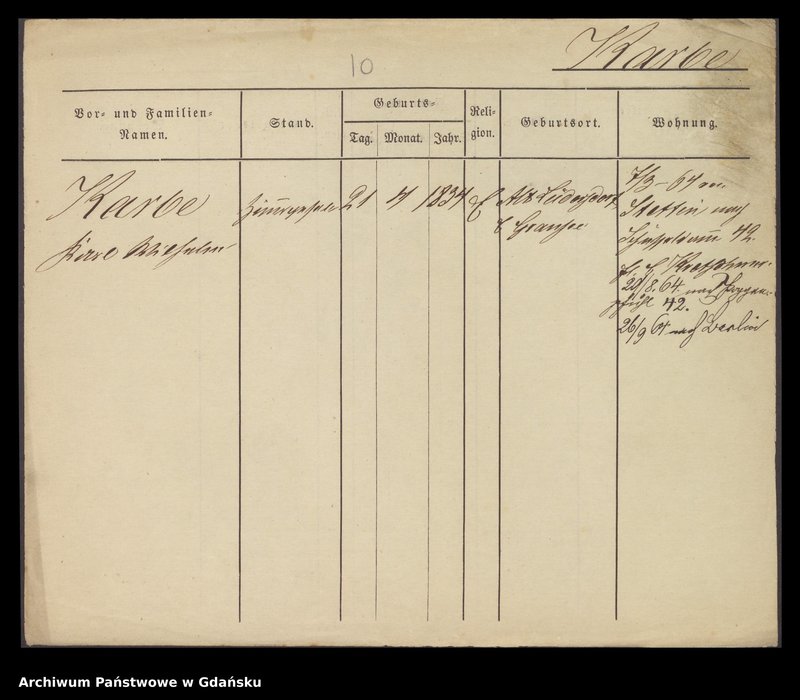 Karbe
10
Vor- und Familien-
Namen.
Stand.
Geburts-
Tag.
Monat.
Jahr.
Reli-
gion.
Geburtsort.
Wohnung.
Karbe
Carl Wilhelm
21
4
1834
E
Alt Lüdersdorf
b Gransee
7/3-64 von
Stettin nach
42
29/8.64 nach Poggen-
pfuhl 42.
26/9 64 nach Berlin
Archiwum Państwowe w Gdańsku